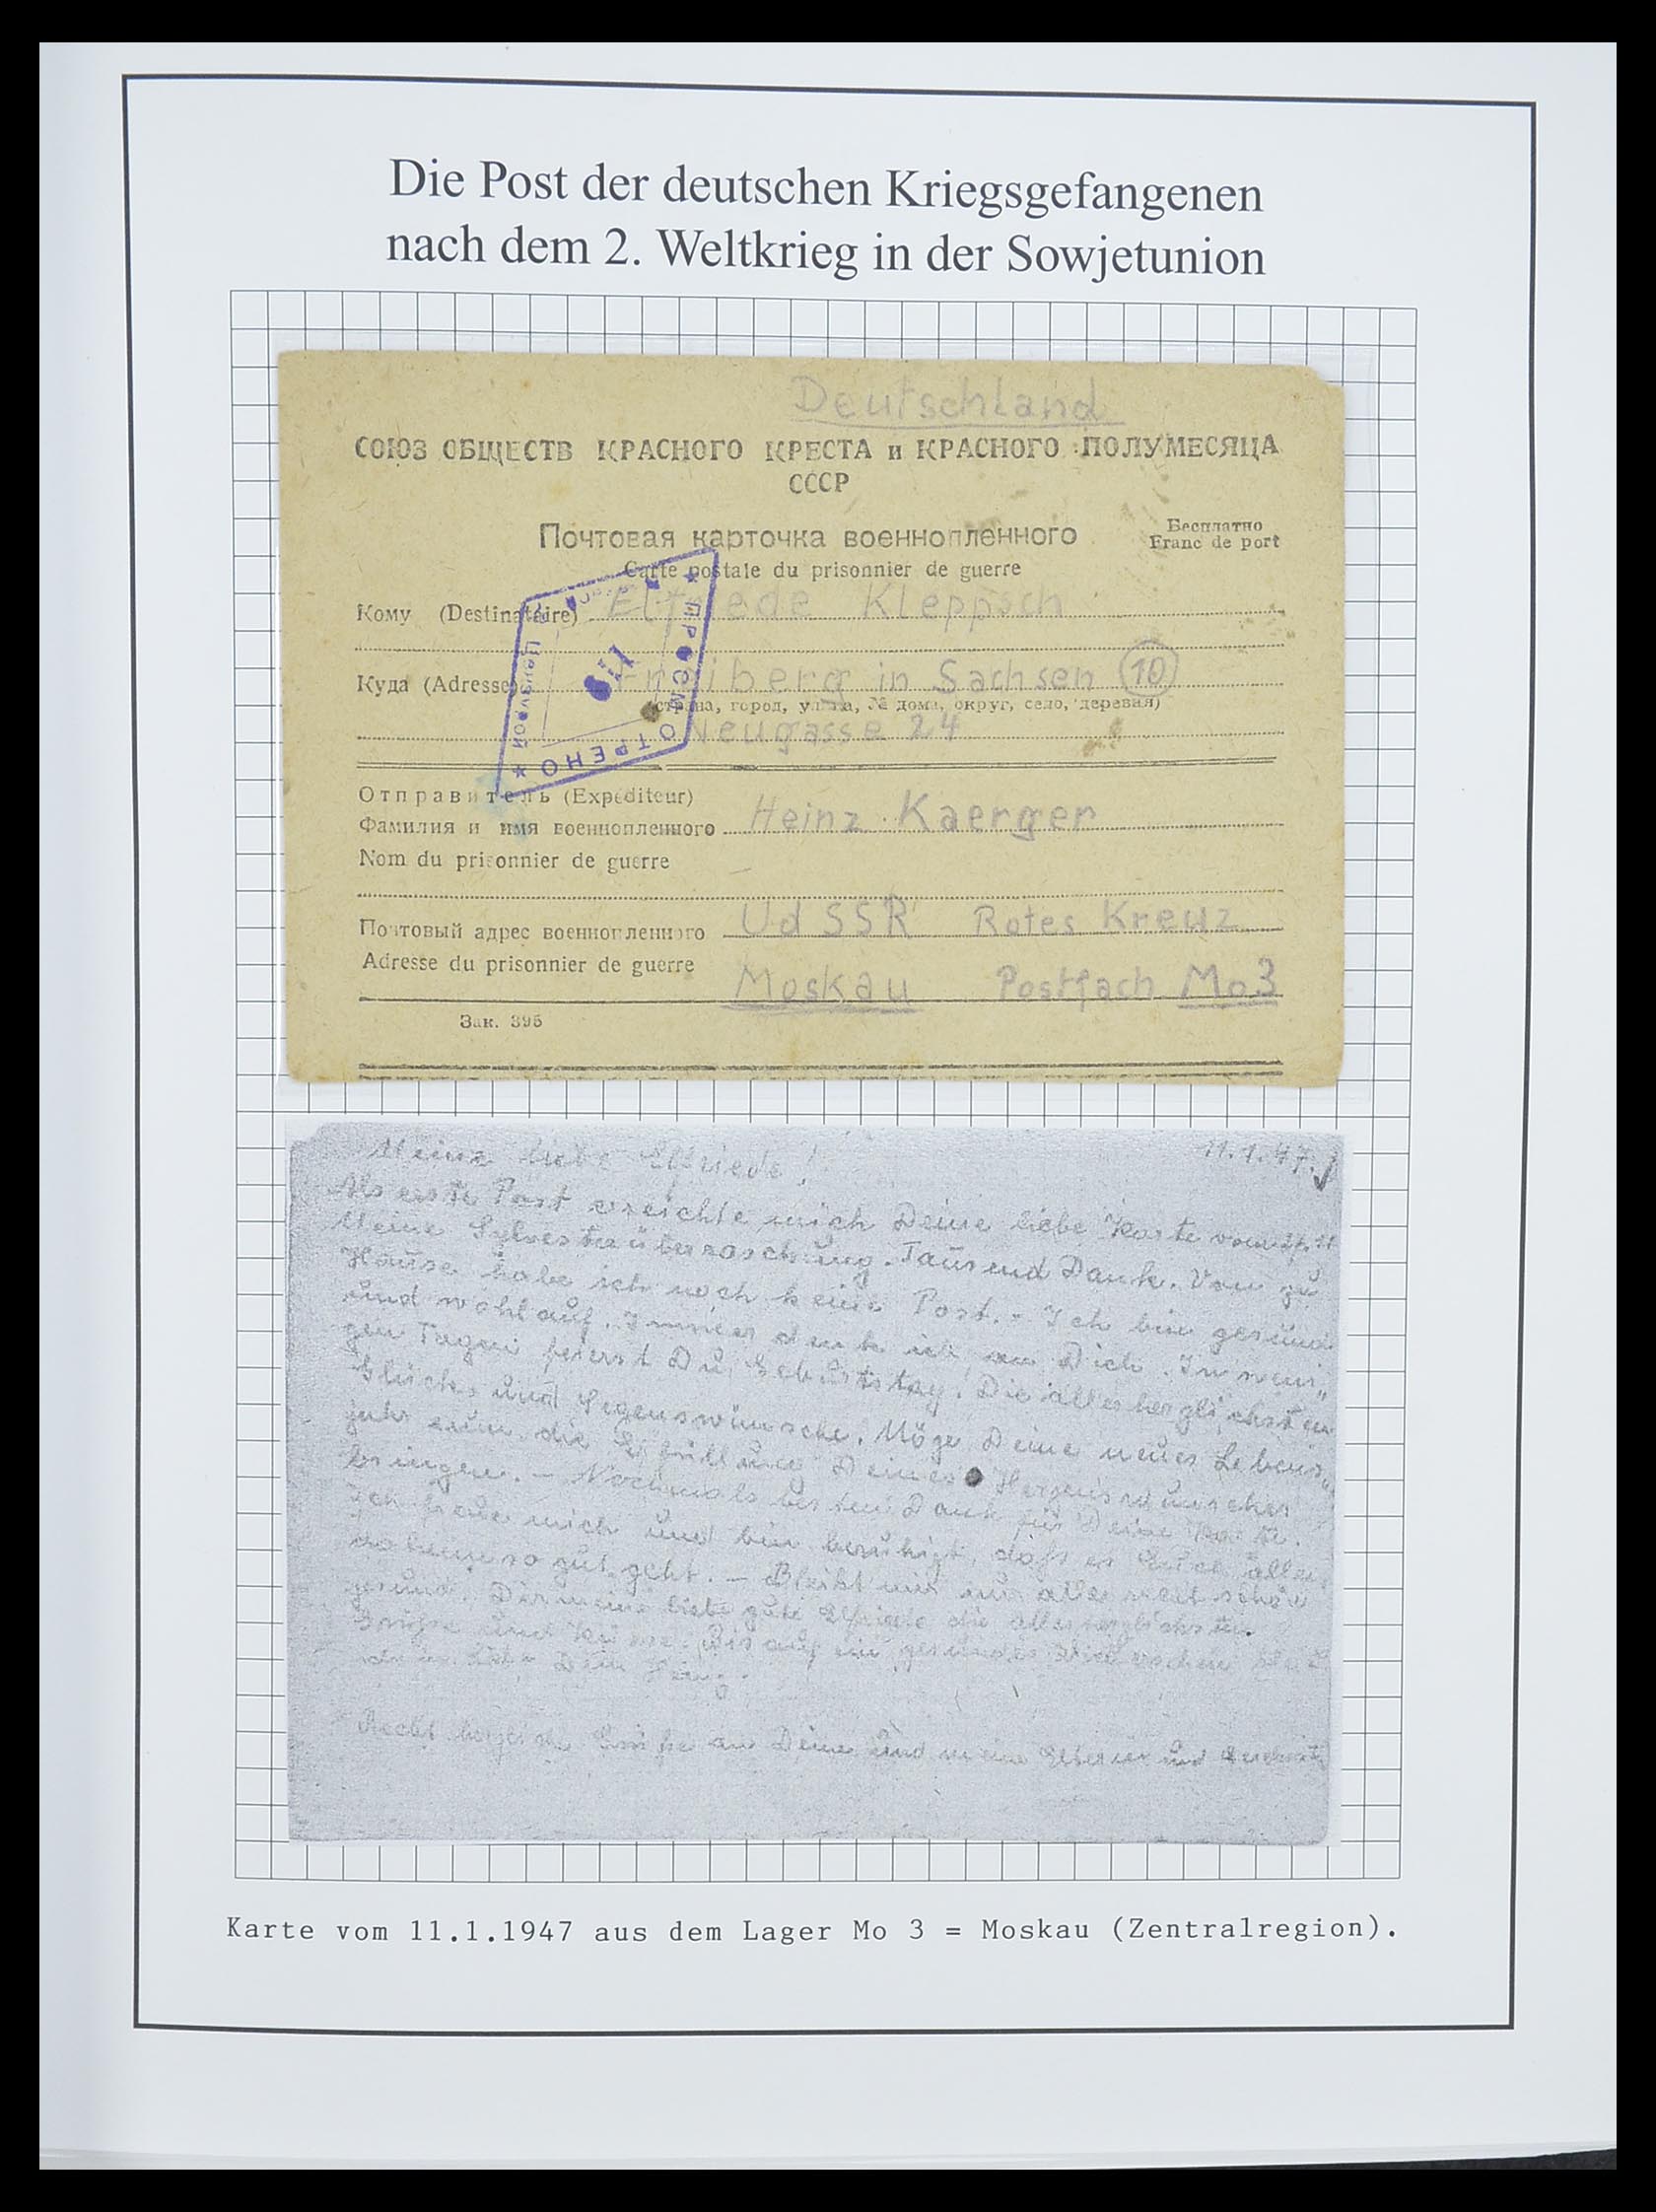 Die Post der deutschen Kriegsgefangenen
nach dem 2. Weltkrieg in der Sowjetunion
Deutschland
СОЮЗ ОБЩЕСТВ КРАСНОГО КРЕСТА и КРАСНОГО ПОЛУМЕСЯЦА
СССР
Почтовая карточка военнопленного
Бесплатно
Franc de port
Carte postale du prisonnier de guerre
Кому (Destinataire) Elfriede Kleppsch
Куда (Adresse) Freiberg in Sachsen 10
(страна, город, улица, № дома, округ, село, деревня)
Neugasse 24
ПРОСМОТРЕНО
Отправитель (Expéditeur)
Фамилия и имя военнопленного Heinz Kaerger
Nom du prisonnier de guerre
Почтовый адрес военнопленного UdSSR Rotes Kreuz
Adresse du prisonnier de guerre
Moskau Postfach Mo3
Зак. 395
11.1.47.
Meine liebe Elfriede!
Als erste Post erreichte mich Deine liebe Karte vom
Meine Sylvesterüberraschung. Tausend Dank. Von zu
Hause habe ich noch keine Post. - Ich bin gesund
und wohlauf. Immer denk ich an Dich. In weni„
gen Tagen feierst Du Geburtstag! Die allerherzlichsten
Glück- und Segenswünsche. Möge Deine neues Lebens„
jahr nun die Erfüllung Deines Herzenswunsches
bringen. - Nochmals besten Dank für Deine Karte.
Ich freue mich und bin beruhigt, daß es Euch allen
daheim so gut geht. - Bleibt mir nur alle recht schön
gesund. Dir meine liebe gute Elfriede die allerherzlichsten
Grüße und Küsse. Bis auf ein gesundes Wiedersehen
Dein Heinz.
Recht herzliche Grüße an Deine und meine Eltern und
Karte vom 11.1.1947 aus dem Lager Mo 3 = Moskau (Zentralregion).